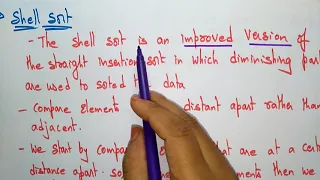 Shell Sort
- The shell sort is an Improved Version of
the straight insertion sort in which diminishing part
are used to sorted the data
- Compare Elements distant apart rather than
adjacent.
- We start by compar El that are at a certa
distance apart. So ements then we